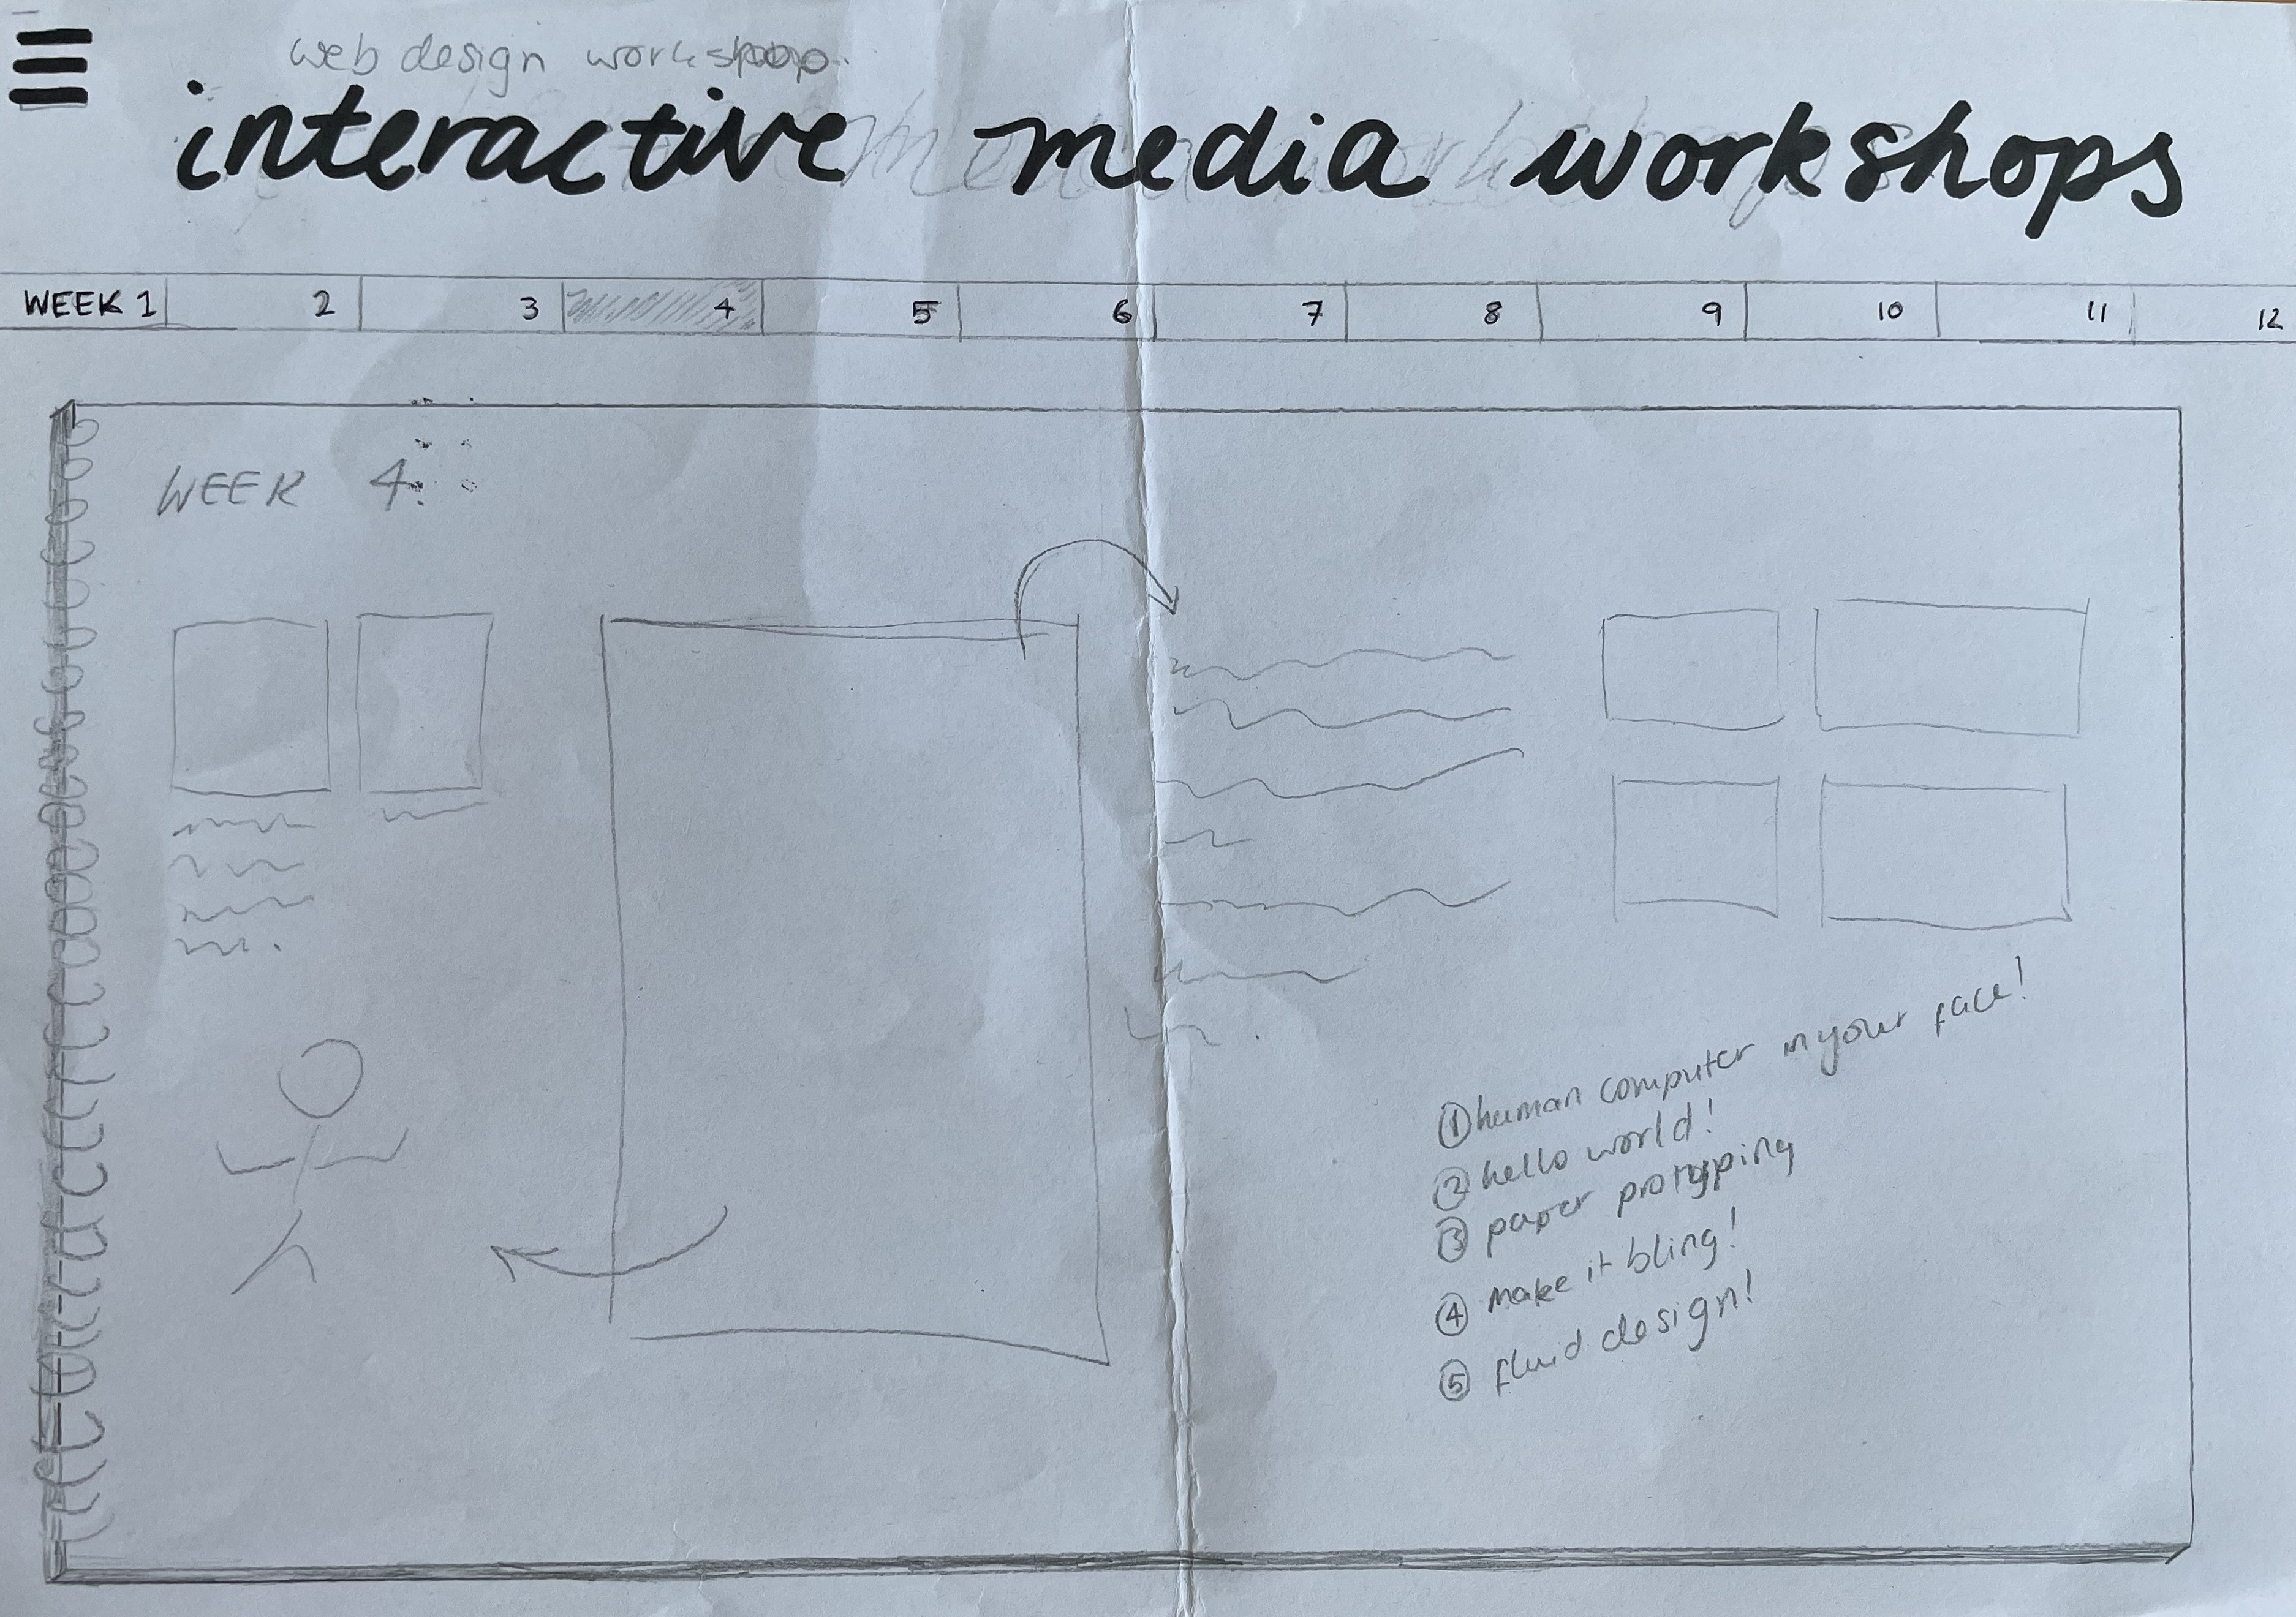 web design workshop.
interactive media workshops
WEEK 1 2 3 4 5 6 7 8 9 10 11 12
WEEK 4.
① human computer in your face!
② hello world!
③ paper protypping
④ make it bling!
⑤ fluid design!